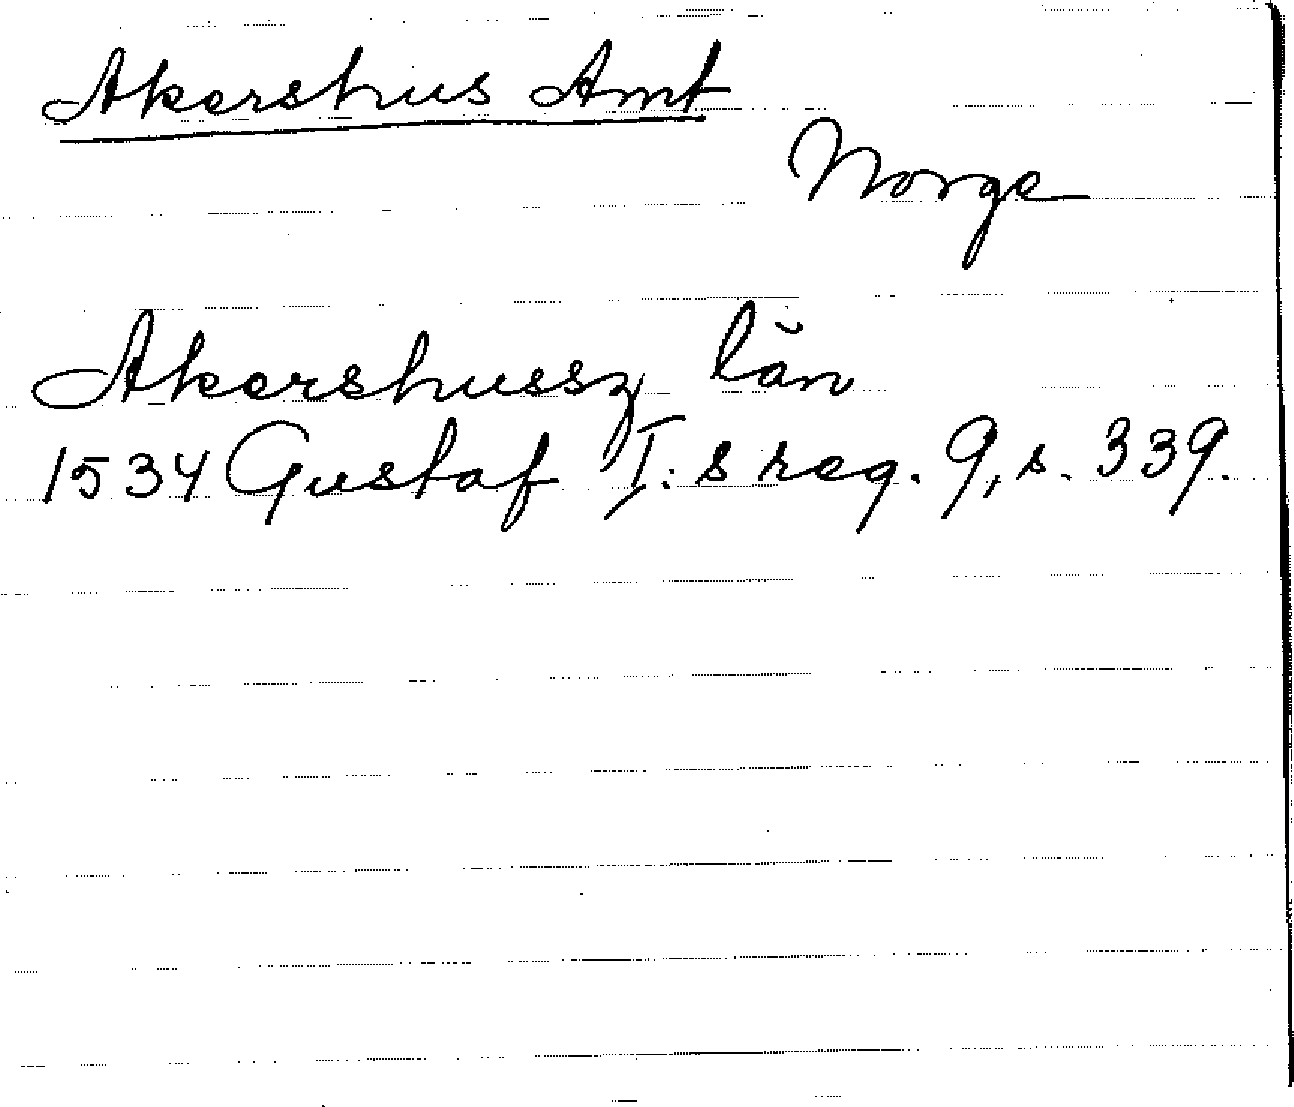 Akershus Amt
Norge
Akershussz län
1534 Gustaf I:s reg. 9, s. 339.